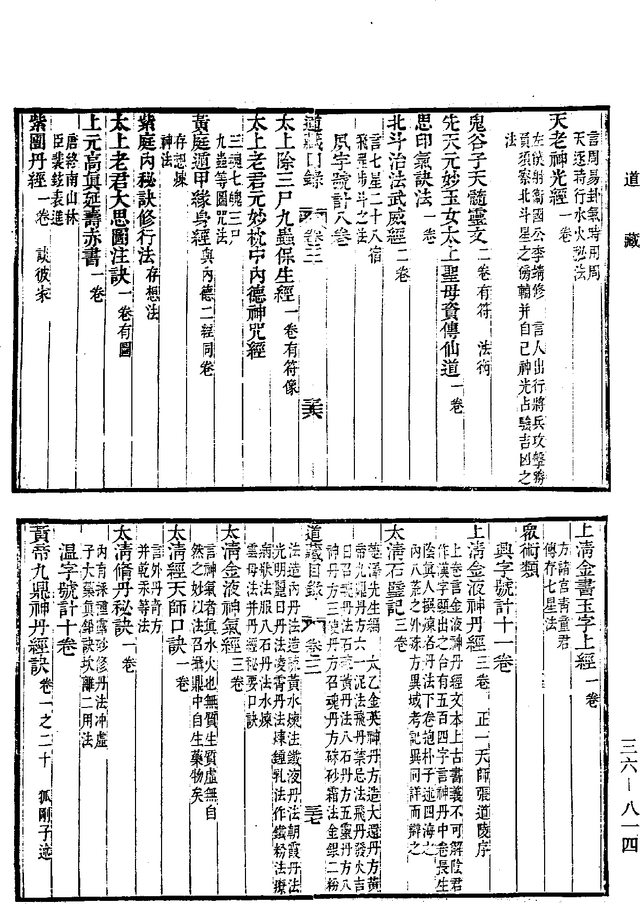 道藏
言周易卦氣時用周
天逐時行水火弘法
天老神光經一卷
左僕射衛國公李靖修 言人出行將兵攻擊務
須察北斗星之傍輔并自己神光占驗吉凶之
法
鬼谷子天髓靈文二卷有符 法術
先天元妙玉女太上聖母資傳仙道一卷
思印氣訣法一卷
北斗治法武威經二卷
言七星二十八宿
飛罡步斗之法
夙字號計八卷
道藏目錄 卷三
太上除三尸九蟲保生經一卷有符像
太上老君元妙枕中內德神咒經
三魂七魄三尸
九蟲等圖咒法
黃庭遁甲緣身經與內德二經同卷
存想煉
神法
紫庭內秘訣修行法存想法
太上老君大思圖注訣一卷有圖
上元高真延壽赤書一卷
唐終南山林
臣裴鉉表進
紫團丹經一卷 談彼家
上清金書玉字上經一卷
方諸宮青童君
傳存七星法
眾術類
興字號計十一卷
上清金液神丹經三卷 正一天師張道陵序
上卷言金液神丹經文本上古書義不可解陰君
作漢字顯出之合有五百四字言神丹中卷長生
陰真人擬煉者丹法下卷抱朴子述四海之
內八荒之外殊方異域考記異同詳而辯之
太清石壁記三卷
楚澤先生編 太乙金英神丹方造大還丹方黃
帝九鼎丹方六一泥法飛丹禁忌法飛丹發火吉
日召魂丹法石硫黃丹法八石丹方五靈丹方八
神丹方三使丹方召魂丹方硃砂霜法金銀二粉
道藏目錄 卷三
法造內丹法造硫黃水煉法鐵液丹法朝霞丹法
光明麗日丹法凌霄丹法煉鍾乳法作鐵粉法療
病狀法服八石丹法水煉
雲母法并丹經秘要口訣
太清金液神氣經三卷
言神氣者真水火也無質生質虛無自
然之妙以法召攝鼎中自生藥物矣
太清經天師口訣一卷
言外丹奇方
并乾汞等法
太清修丹秘訣一卷
內有採種露砂修丹法沖虛
子大藥真鉛訣坎離二用法
溫字號計十卷
黃帝九鼎神丹經訣卷一之二十 狐剛子述
三六-八一四